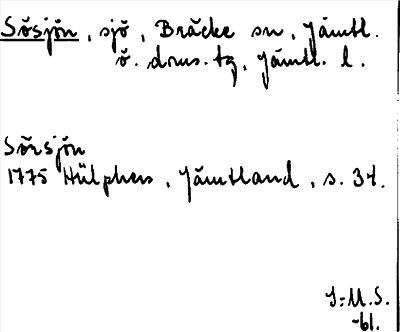 Sösjön, sjö, Bräcke sn, Jämtl.
ö. doms. tg, Jämtl. l.
Sörsjön
1775 Hülphers, Jämtland, s. 34.
I-M.S.
-61.